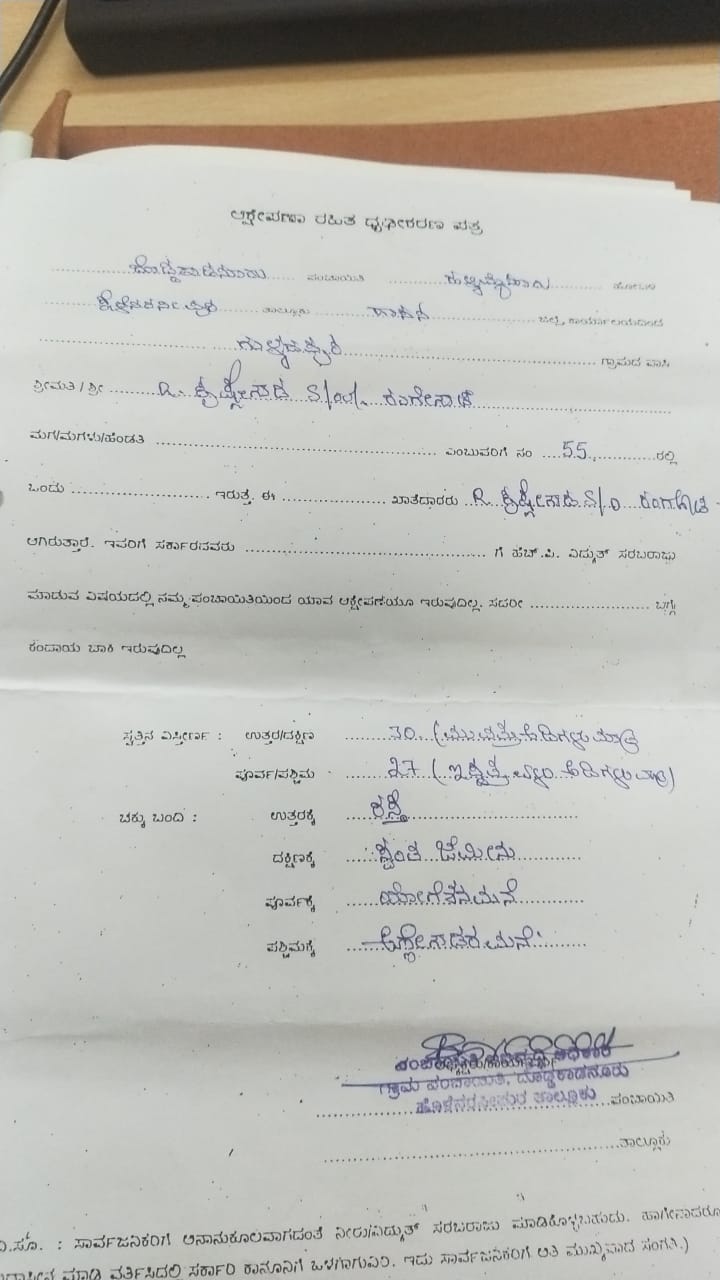 ಆಕ್ಷೇಪಣಾ ರಹಿತ ಧೃಢೀಕರಣ ಪತ್ರ
ದೊಡ್ಡಕಾಡನೂರು ಪಂಚಾಯಿತಿ ಹೋಬಳಿ
ತಾಲ್ಲೂಕು ಹಾಸನ ಜಿಲ್ಲೆ, ಕಾರ್ಯಾಲಯದಿಂದ
ಗ್ರಾಮದ ವಾಸಿ
ಶ್ರೀಮತಿ / ಶ್ರೀ R. ಕೃಷ್ಣೇಗೌಡ S/o/. ರಂಗೇಗೌಡ
ಮಗ/ಮಗಳು/ಹೆಂಡತಿ ಎಂಬುವರಿಗೆ ನಂ 55 ರಲ್ಲಿ
ಒಂದು ಇರುತ್ತೆ. ಈ ಖಾತೆದಾರರು R. ಕೃಷ್ಣೇಗೌಡ S/o ರಂಗೇಗೌಡ
ಆಗಿರುತ್ತಾರೆ. ಇವರಿಗೆ ಸರ್ಕಾರದವರು ಗೆ ಹೆಚ್.ಪಿ. ವಿದ್ಯುತ್ ಸರಬರಾಜು
ಮಾಡುವ ವಿಷಯದಲ್ಲಿ ನಮ್ಮ ಪಂಚಾಯಿತಿಯಿಂದ ಯಾವ ಆಕ್ಷೇಪಣೆಯೂ ಇರುವುದಿಲ್ಲ. ಸದರೀ ಬಗ್ಗೆ
ಕಂದಾಯ ಬಾಕಿ ಇರುವುದಿಲ್ಲ
ಸ್ವತ್ತಿನ ವಿಸ್ತೀರ್ಣ : ಉತ್ತರ/ದಕ್ಷಿಣ 30. (ಮೂವತ್ತು ಅಡಿಗಳು ಮಾತ್ರ
ಪೂರ್ವ/ಪಶ್ಚಿಮ 27 (ಇಪ್ಪತ್ತೇಳು ಅಡಿಗಳು ಮಾತ್ರ)
ಚಕ್ಕು ಬಂದಿ : ಉತ್ತರಕ್ಕೆ ರಸ್ತೆ
ದಕ್ಷಿಣಕ್ಕೆ ಸ್ವಂತ ಜಮೀನು
ಪೂರ್ವಕ್ಕೆ ಯೋಗೇಶನ ಮನೆ
ಪಶ್ಚಿಮಕ್ಕೆ ಮನೆ
ಪಂಚಾಯ್ತಿ ಅಭಿವೃದ್ಧಿ ಅಧಿಕಾರಿ
ಗ್ರಾಮ ಪಂಚಾಯಿತಿ, ದೊಡ್ಡಕಾಡನೂರು
ಹೊಳೆನರಸೀಪುರ ತಾಲ್ಲೂಕು ಪಂಚಾಯಿತಿ
ತಾಲ್ಲೂಕು
ವಿ.ಸೂ. : ಸಾರ್ವಜನಿಕರಿಗೆ ಅನಾನುಕೂಲವಾಗದಂತೆ ನೀರು/ವಿದ್ಯುತ್ ಸರಬರಾಜು ಮಾಡಿಕೊಳ್ಳಬಹುದು. ಹಾಗೇನಾದರೂ
ಮಾಡಿ ವರ್ತಿಸಿದಲ್ಲಿ ಸರ್ಕಾರಿ ಕಾನೂನಿಗೆ ಒಳಗಾಗುವಿರಿ. ಇದು ಸಾರ್ವಜನಿಕರಿಗೆ ಅತಿ ಮುಖ್ಯವಾದ ಸಂಗತಿ.)